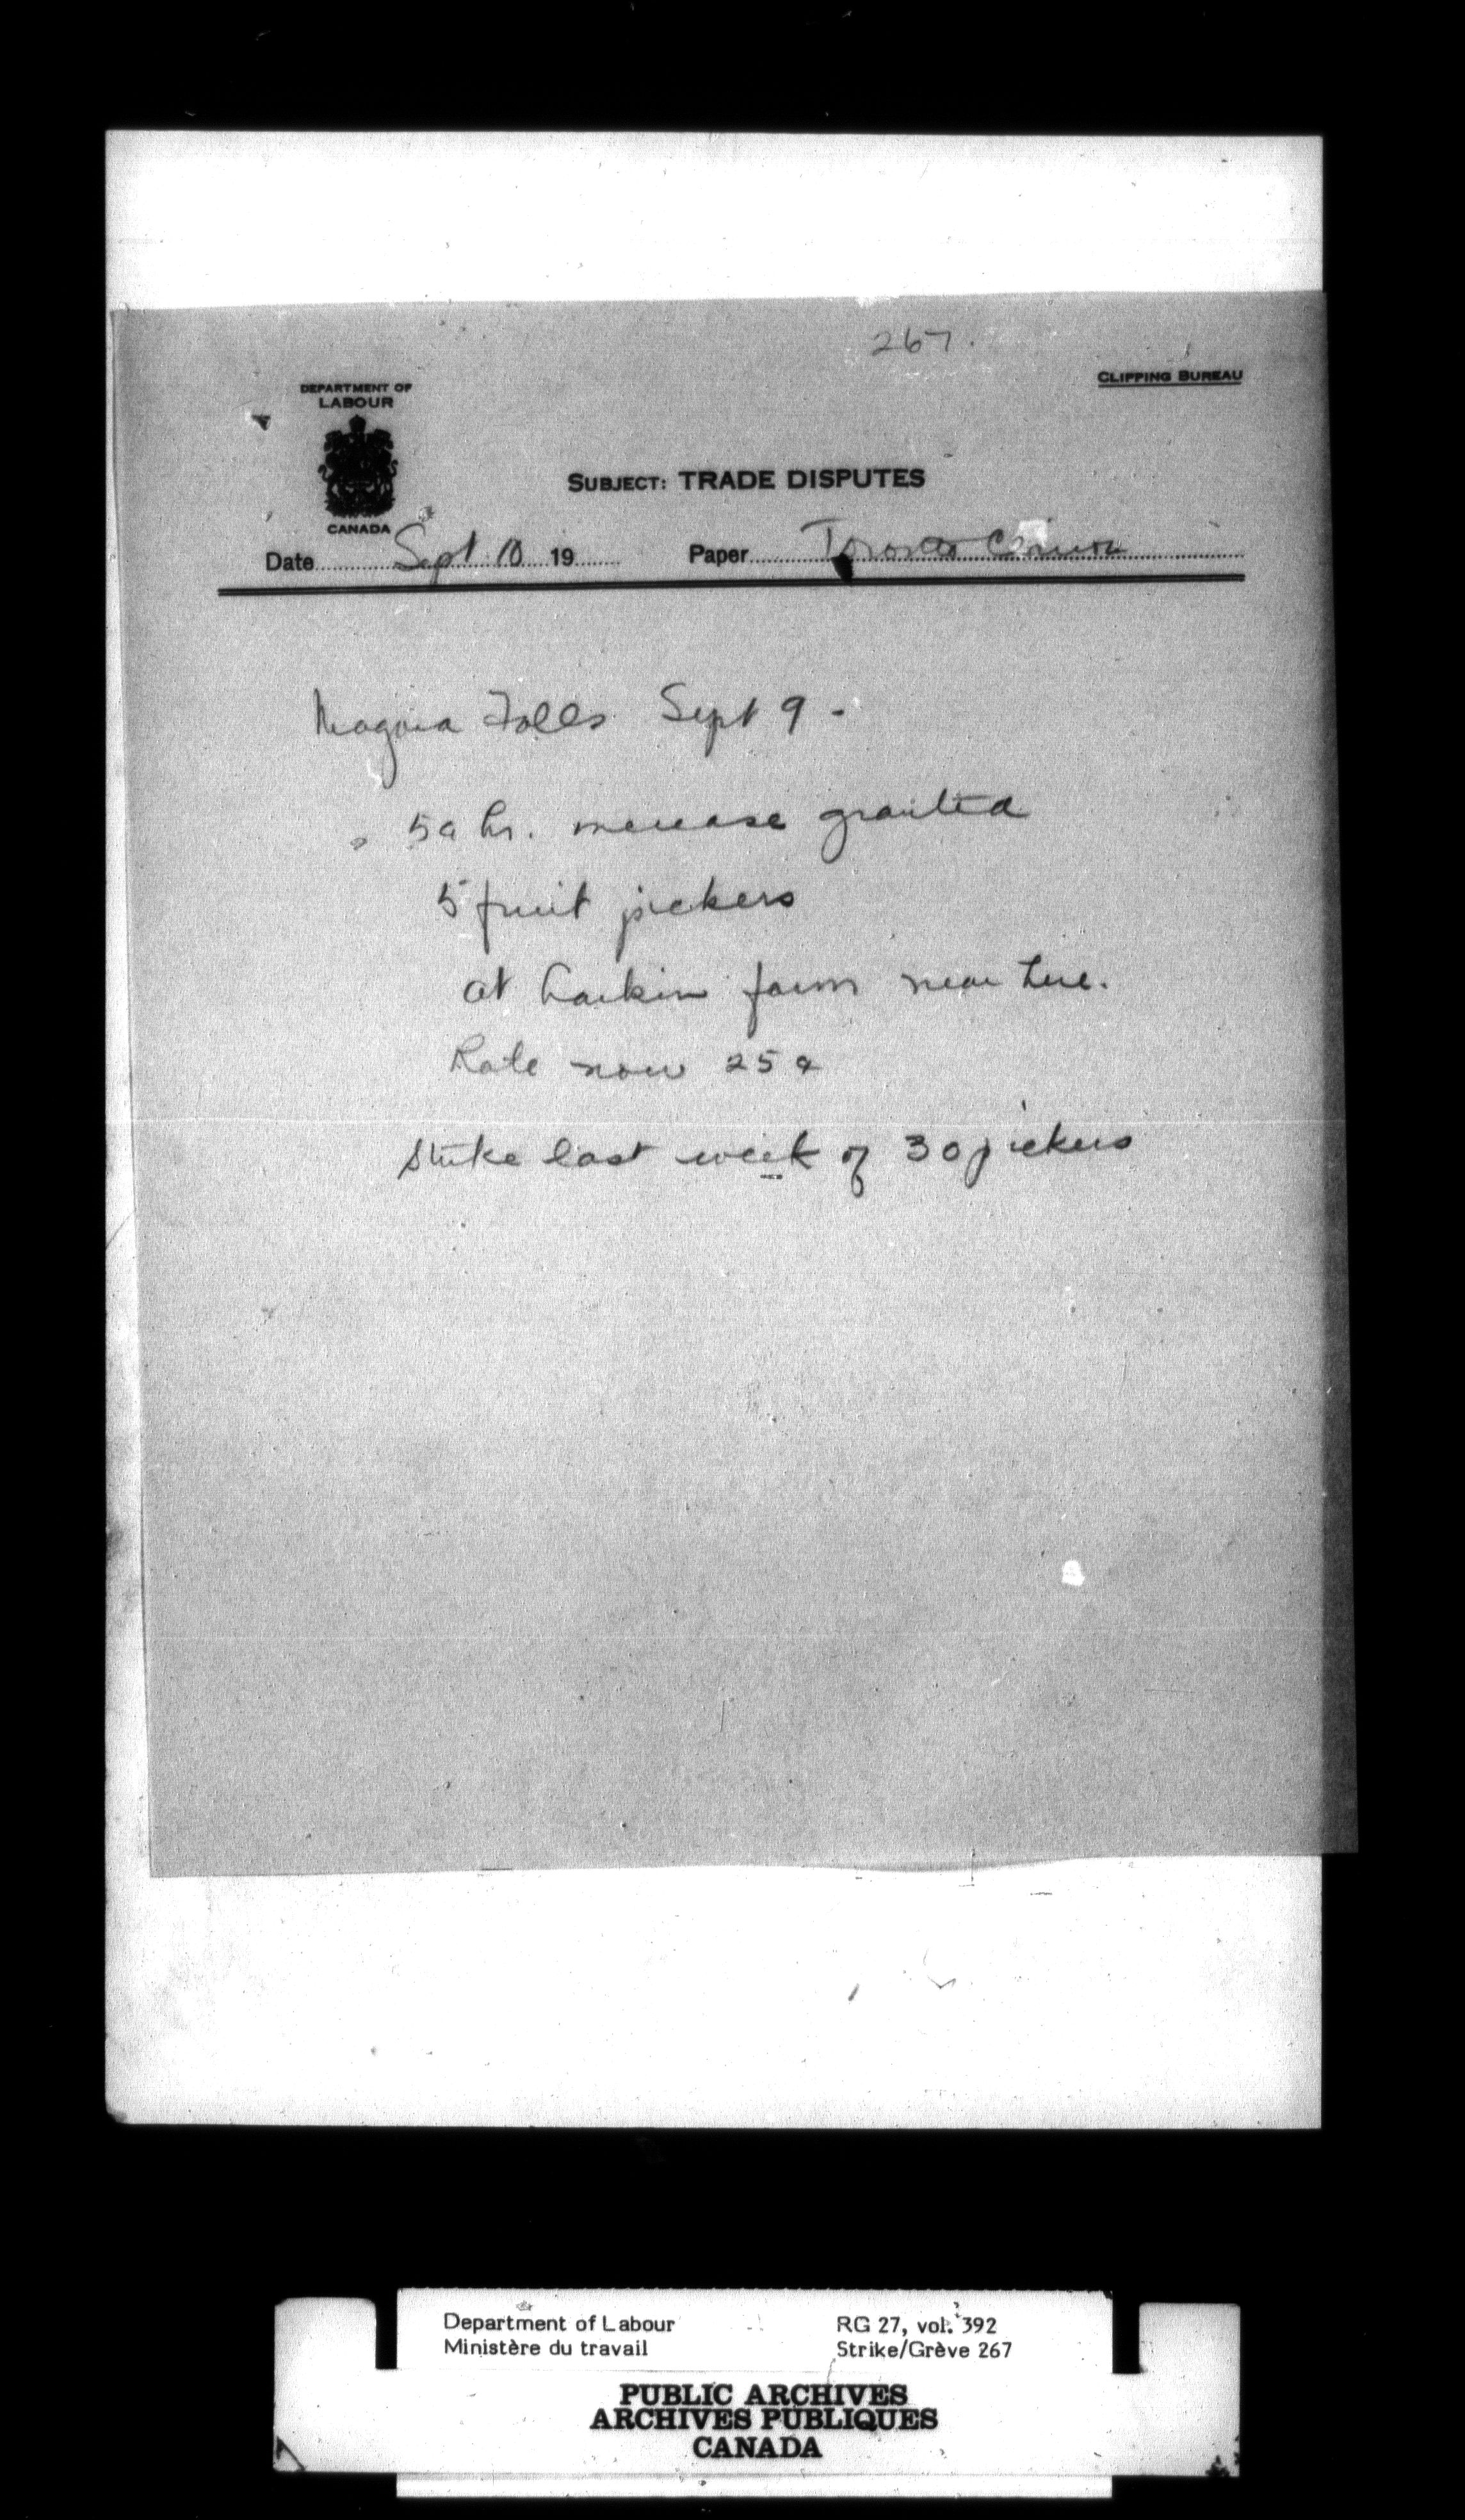 267.
CLIPPING BUREAU
DEPARTMENT OF
LABOUR
SUBJECT: TRADE DISPUTES
CANADA
Date Sept 10 19 Paper Toronto
Niagara Falls Sept 9 -
5¢ hr. increase granted
5 fruit pickers
at Larkin farm near here.
Rate now 25¢
Strike last week of 30 pickers
Department of Labour
Ministère du travail
RG 27, vol. 392
Strike/Grève 267
PUBLIC ARCHIVES
ARCHIVES PUBLIQUES
CANADA